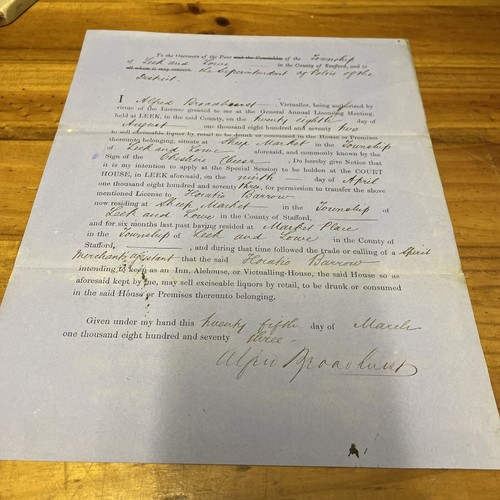 To the Overseers of the Poor and the Constables of the Township
of Leek and Lowe in the County of Stafford, and to
all whom it may concern. the Superintendent of Police of the
District.
I Alfred Broadhurst, Victualler, being authorized by
virtue of the Licence granted to me at the General Annual Licensing Meeting,
held at LEEK, in the said County, on the twenty eighth day of
August one thousand eight hundred and seventy two
to sell exciseable liquor by retail to be drunk or consumed in the House or Premises
thereunto belonging, situate at Sheep Market in the Township
of Leek and Lowe aforesaid, and commonly known by the
Sign of the Cheshire Cheese, Do hereby give Notice that
it is my intention to apply at the Special Session to be holden at the COURT
HOUSE, in LEEK aforesaid, on the ninth day of April
one thousand eight hundred and seventy three, for permission to transfer the above
mentioned License to Horatio Barrow
now residing at Sheep Market in the Township of
Leek and Lowe in the County of Stafford,
and for six months last past having resided at Market Place
in the Township of Leek and Lowe in the County of
Stafford, and during that time followed the trade or calling of a Spirit
Merchants assistant the said Horatio Barrow
intending to keep as an Inn, Alehouse, or Victualling-House, the said House so as
aforesaid kept by me, may sell exciseable liquors by retail, to be drunk or consumed
in the said House or Premises thereunto belonging.
Given under my hand this twenty fifth day of March
one thousand eight hundred and seventy three.
Alfred Broadhurst